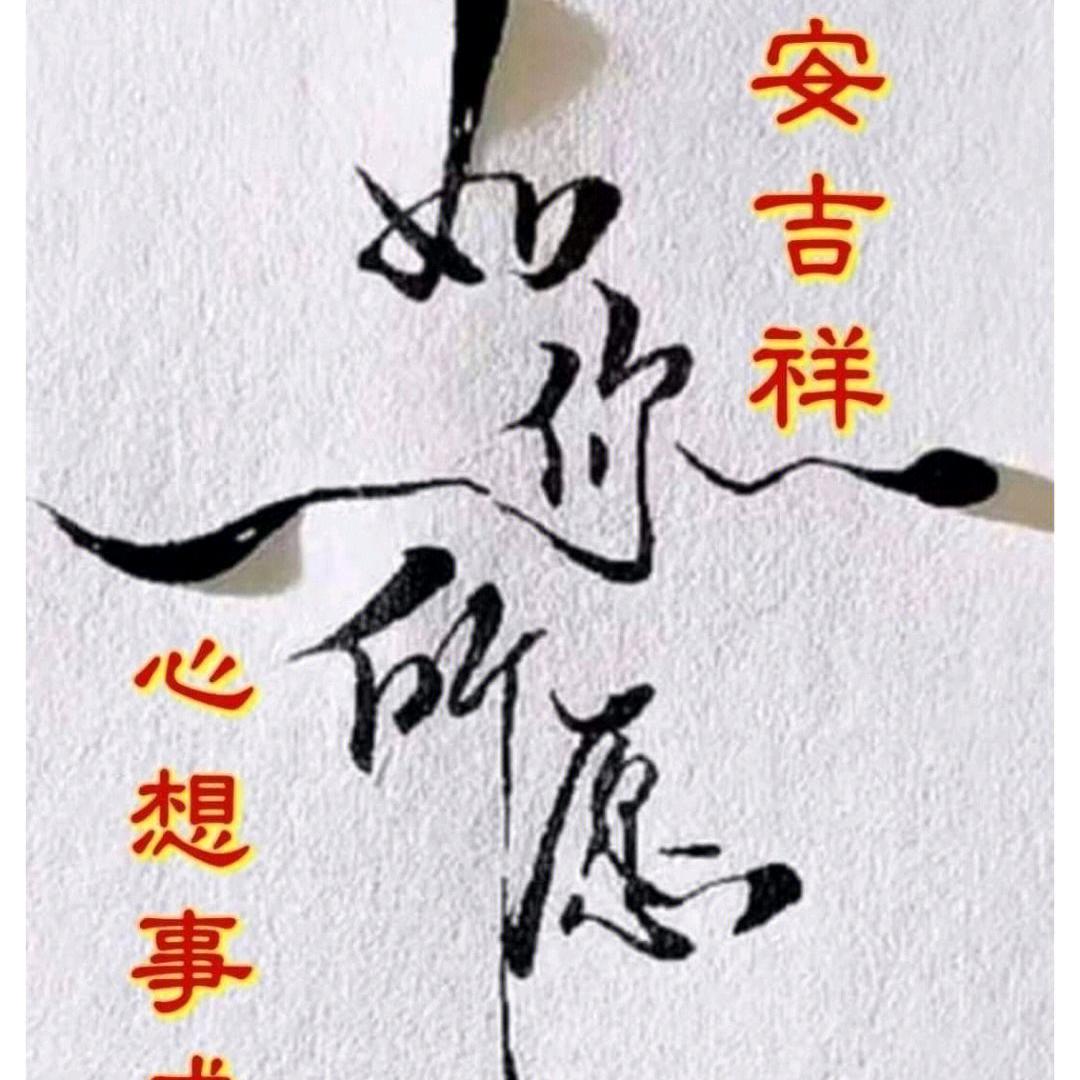 安吉祥
如你所愿
心想事